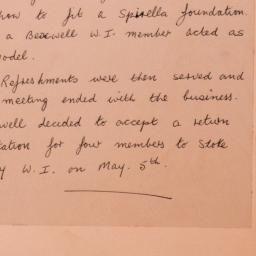 how to fit a Spirella foundation.
a Bexwell W.I. member acted as
model.
Refreshments were then served and
meeting ended with the business.
well decided to accept a return
tation for four members to Stoke
y W.I. on May. 5th.